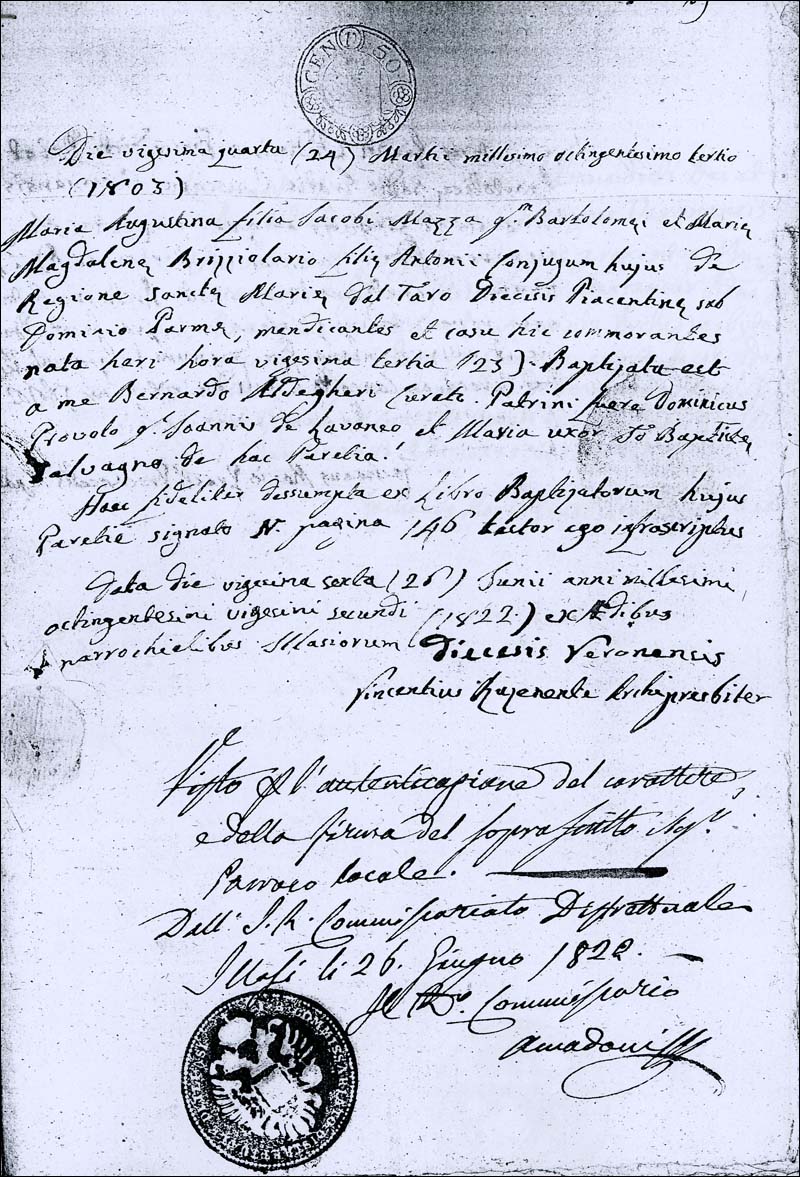 CENT 50
Die vigesima quarta (24) Martii millesimo octingentesimo tertio
(1803)
Maria Augustina filia Jacobi Mazza qm Bartolomei et Marię
Magdalenę Brizziolario filię Antonii Conjugum hujus de
Regione Sanctę Marię dal Taro Diecesis Piacentinę sub
Dominio Parmę, mendicantes et casu hic commorantes
nata heri hora vigesima tertia (23). Baptizata est
a me Bernardo Aldegheri Curato. Patrini fuere Dominicus
Provolo qm Joannis de Lavaneo et Maria uxor Jo Baptistę
Salvagno de hac Parelia.
Haec fideliter dessumpta ex Libro Baptizatorum hujus
Parelię signato N. pagina 146 testor ego infrascriptus
Data die vigesima sexta (26) Junii anni millesimi
octingentesimi vigesimi secundi (1822) ex Ædibus
parrochielibus Illasiorum Diecesis Veronensis
Vincentius Archipresbiter
Visto p l'autenticazione del carattere
e della firma del sopra scritto Sigr
Parroco locale.
Dall' I. R. Commissariato Distrettuale
Illasi li 26. Giugno 1822.
Il Ro. Commissario
Amadori